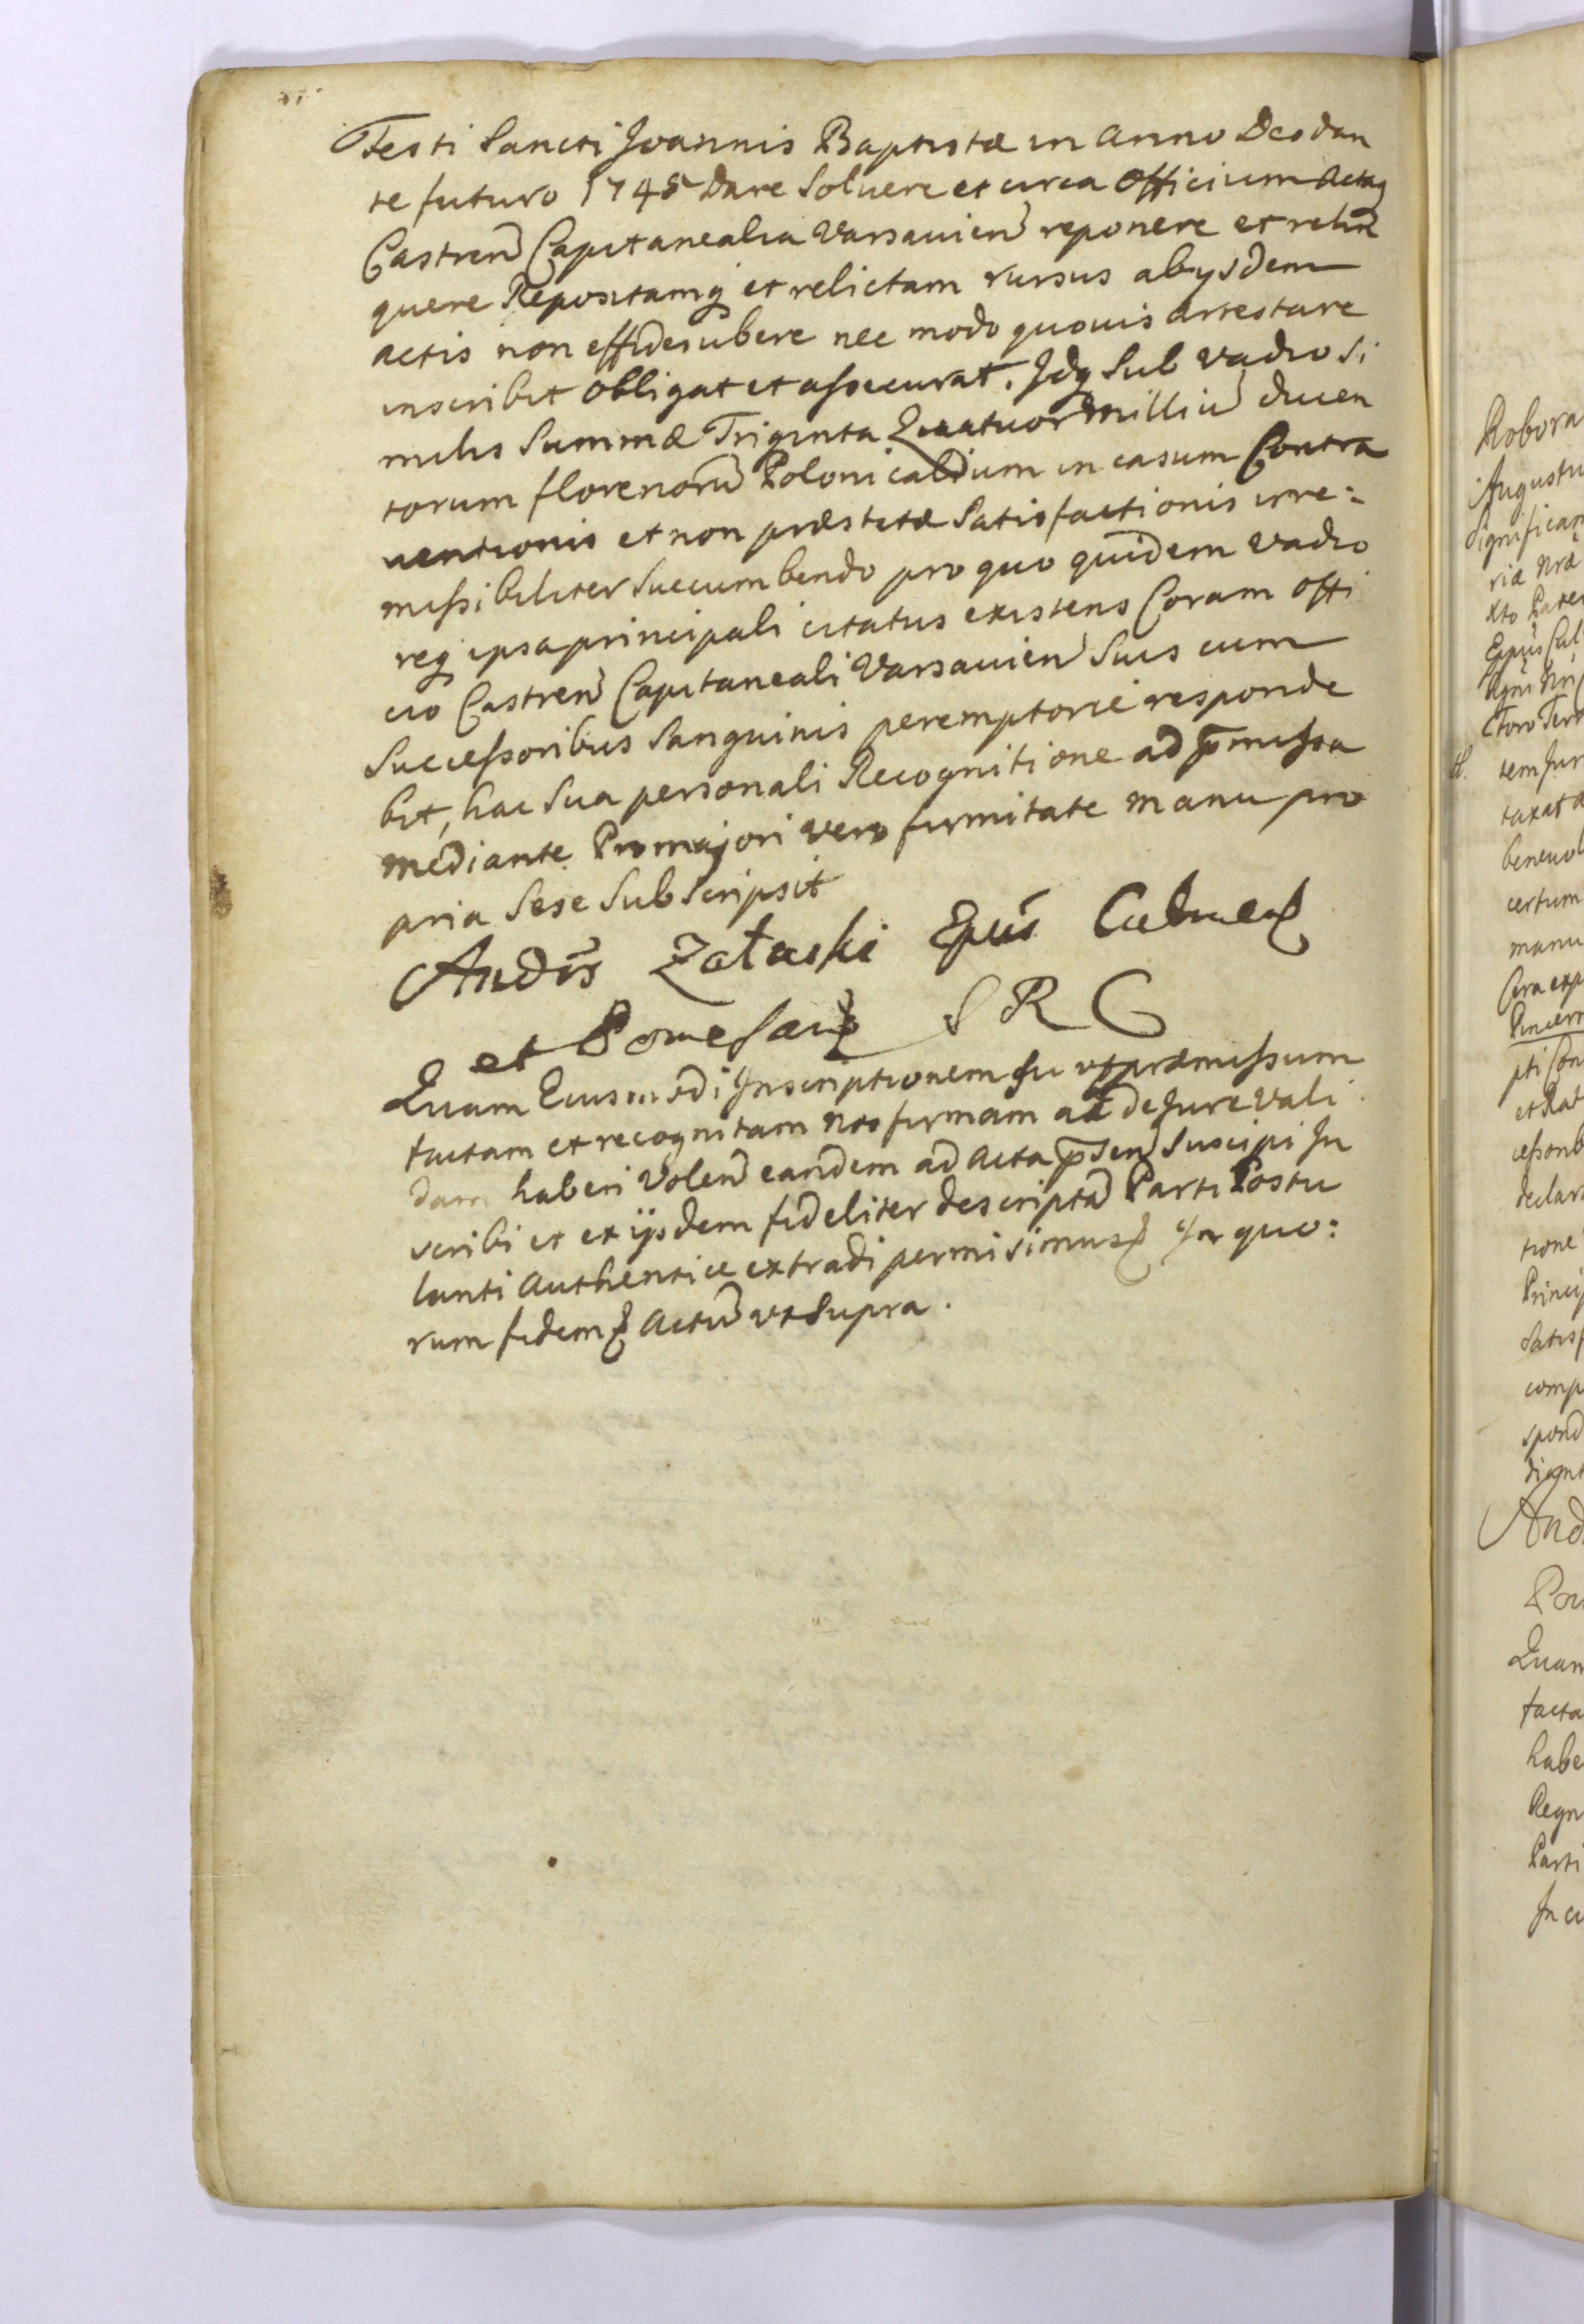 Festi Sancti Joannis Baptistæ in Anno Deo dan
te futuro 1745 dare Soluere et circa Officium Actaq
Castren Capitanealia Varsavien reponere et relin
quere Repositamq et relictam rursus ab ijsdem
actis non effidejubere nec modo quovis Arrestare
inscribit obligat et assecurat. Jdq Sub vadio Si
milis Summæ Triginta Quatuor Milliu ducen
torum florenoru Polonicalium in casum Contra
uentionis et non præstitæ Satisfactionis irre=
missibiliter Succumbendo pro quo quidem vadio
req ipsa principali citatus existens Coram Offi
cio Castren Capitaneali Varsavien Suis cum
Successoribus Sanguinis peremptorie responde
bit, hac Sua personali Recognitione ad pmissa
mediante. Pro majori vero firmitate manu pro
pria Sese Subscripsit
Andrs Załuski Epus Culmen
et Pomesan S R C
Quam Eiusmodi Inscriptionem Su ut præmissum
factam et recognitam nos firmam ac de Jure vali
dam haberi Volen eandem ad Acta psen Suscipi In
scribi et ex ijsdem fideliter descripta Parti Postu
lanti Authentice extradi permisimus In quo:
rum fidem Actu ut Supra.
Robora
Augustu
Significam
riæ Nræ
xto Pater
Eppus Cul
tem Jur
taxat a
beneuol
certum
manu
Cora exp
Pincern
pti Con
et Rat
cessorib
declara
tione
Princip
Satisf
comp
spond
diant
And
Pom
Quam
facta
habe
Regn
Parti
In cu